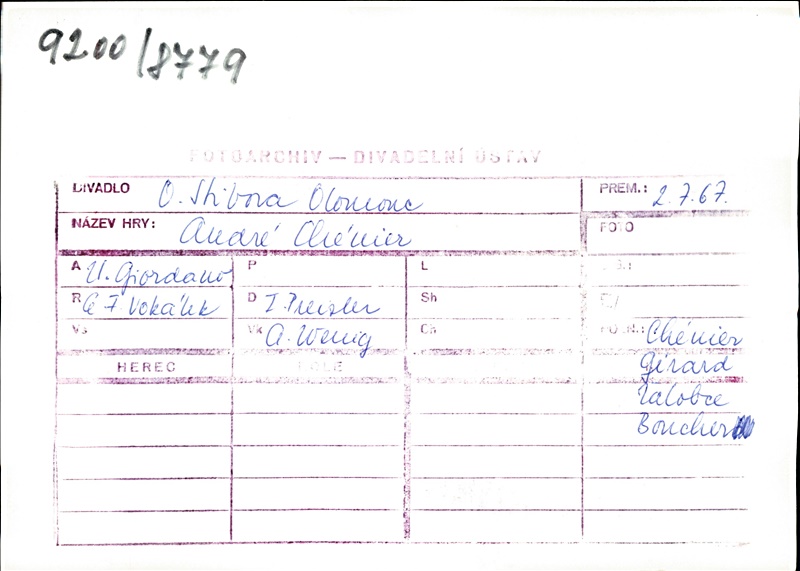 9200/8779
FOTOARCHIV — DIVADELNÍ ÚSTAV
DIVADLO O. Stibora Olomouc
PREM.: 2.7.67.
NÁZEV HRY: André Chénier
FOTO
A U. Giordano
P
L
R F Vokálek
D I. Preisler
Sh
Vs
Vk A. Wenig
Ch
Chénier
HEREC
ROLE
Gérard
žalobce
Boucher